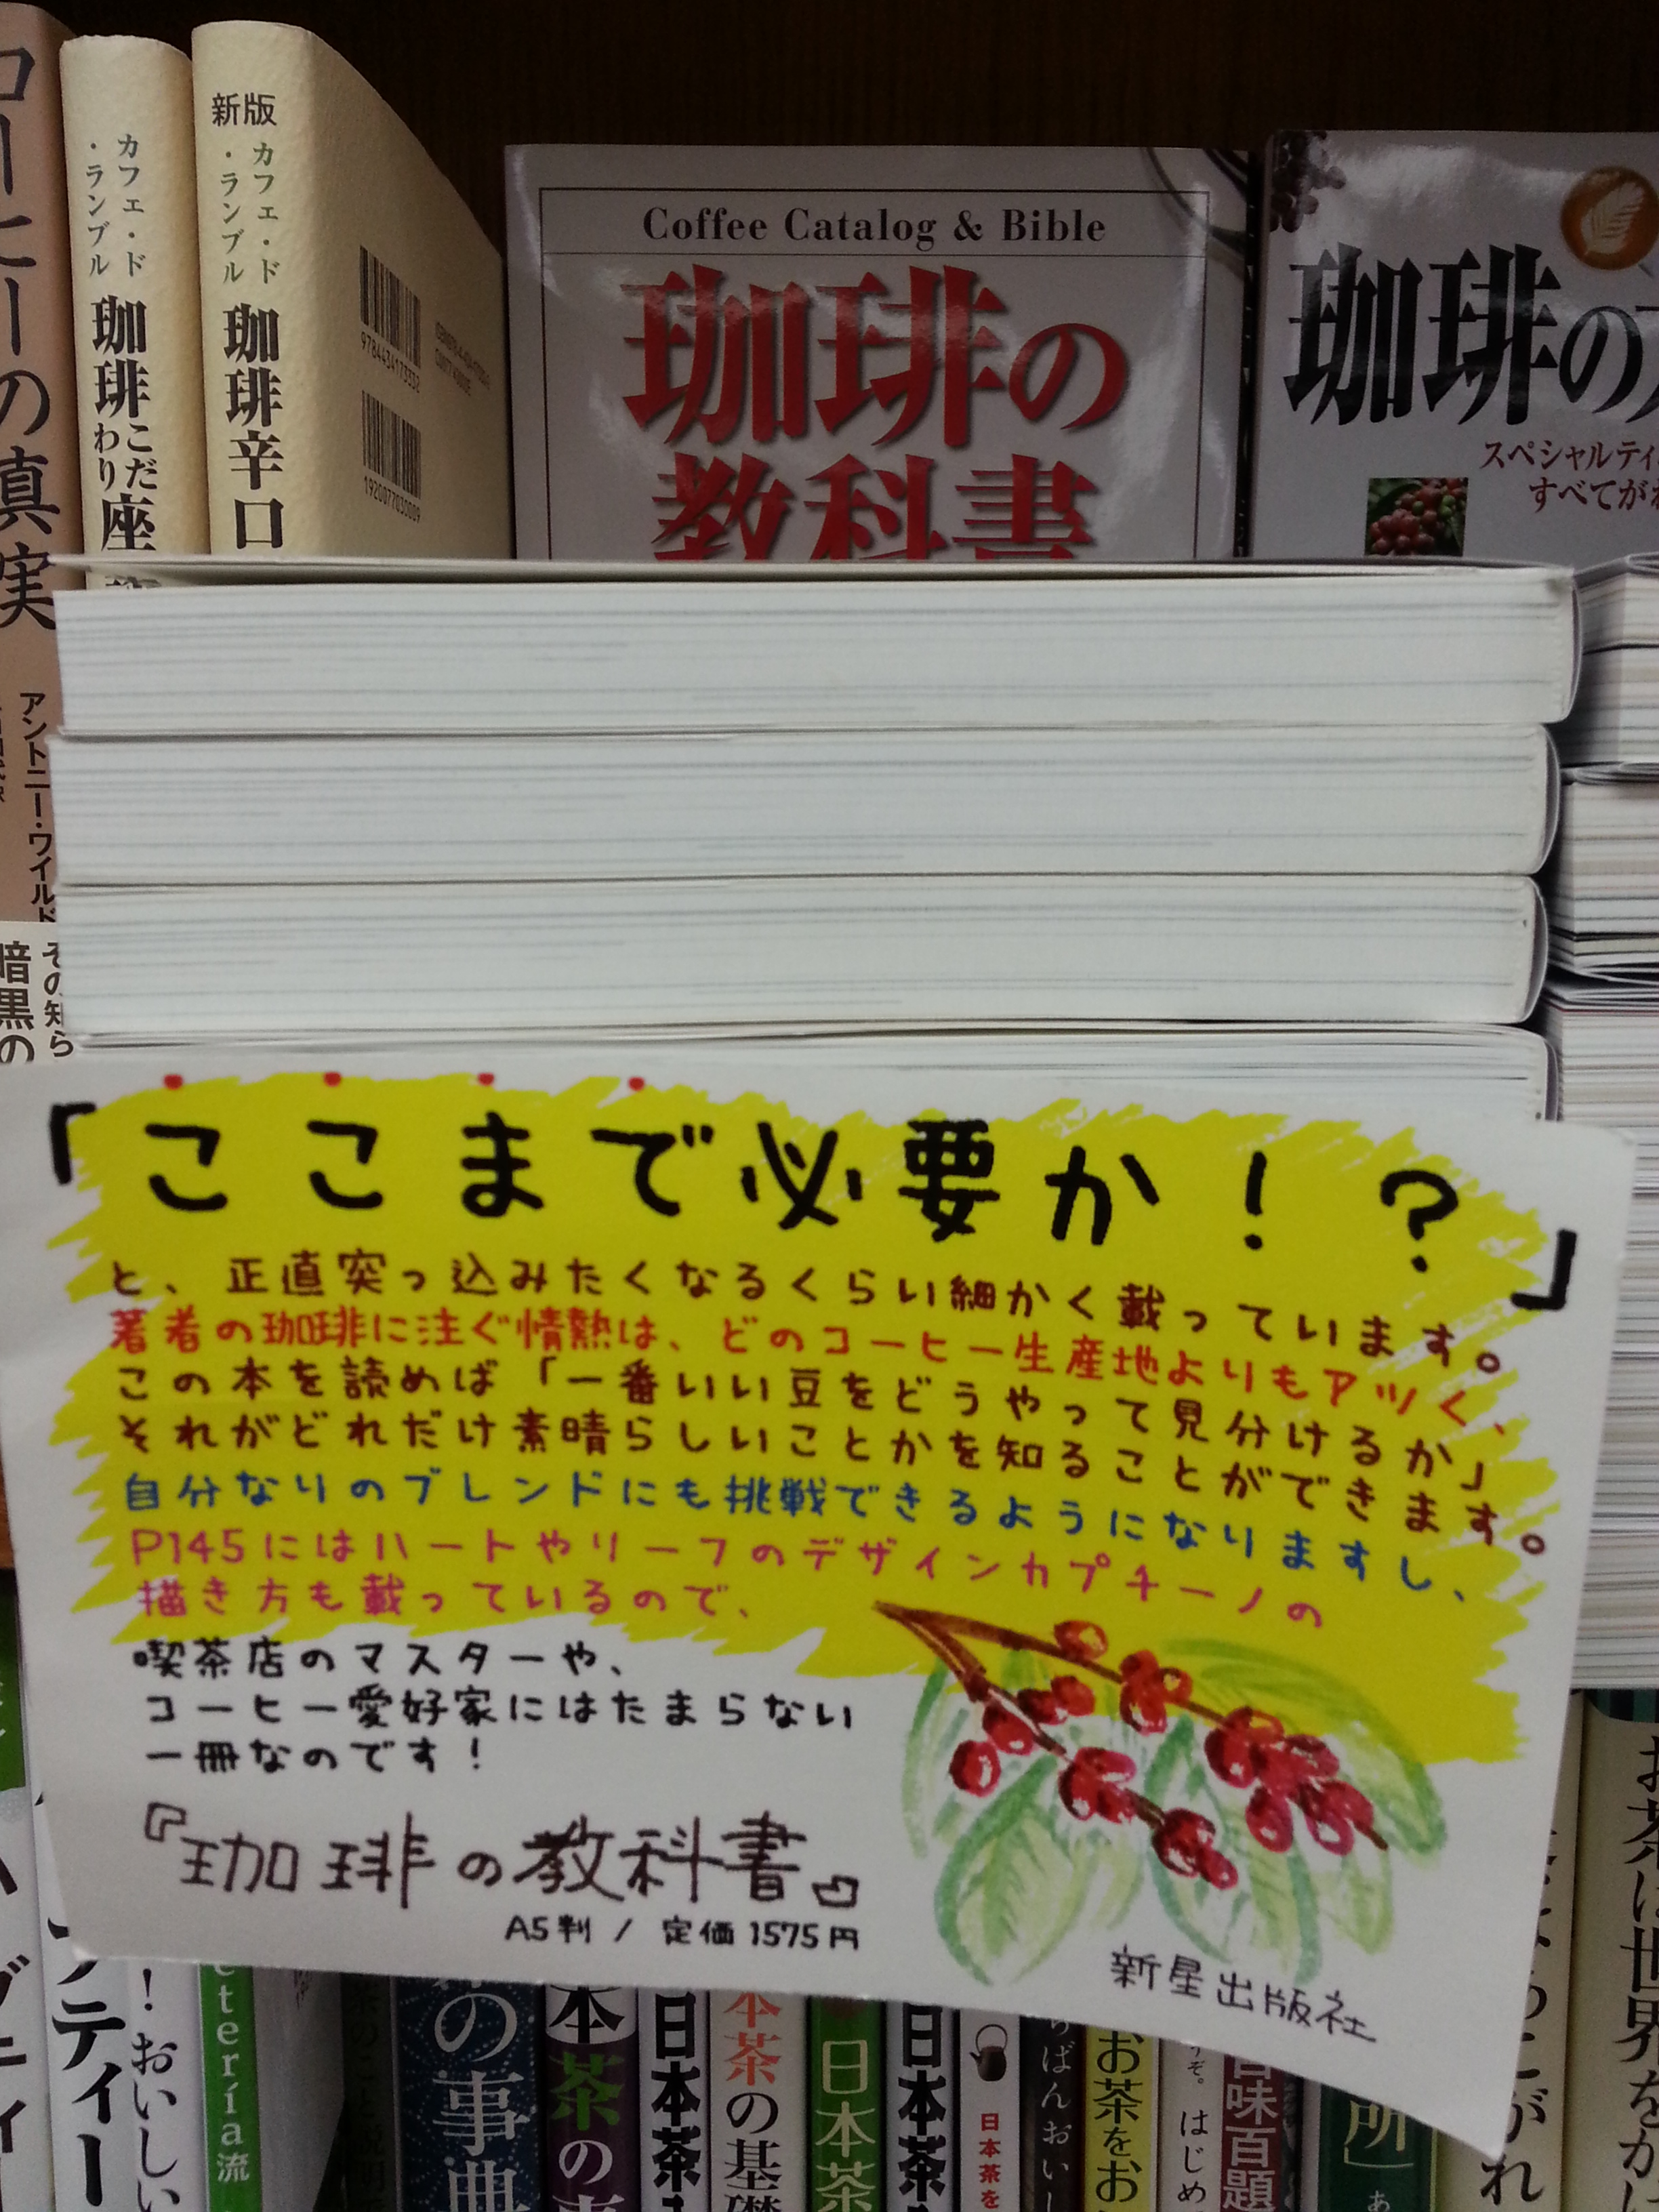 コーヒーの真実
アントニー・ワイルド
その知ら
暗黒の
カフェ・ド
・ランブル
珈琲こだわり座
新版
カフェ・ド
・ランブル
珈琲辛口
9784434173332
1920077030009
Coffee Catalog & Bible
珈琲の
教科書
珈琲の
スペシャルティ
すべてがわ
「ここまで必要か！？」
と、正直突っ込みたくなるくらい細かく載っています。
著者の珈琲に注ぐ情熱は、どのコーヒー生産地よりもアツく、
この本を読めば「一番いい豆をどうやって見分けるか」
それがどれだけ素晴らしいことかを知ることができます。
自分なりのブレンドにも挑戦できるようになりますし、
P145にはハートやリーフのデザインカプチーノの
描き方も載っているので、
喫茶店のマスターや、
コーヒー愛好家にはたまらない
一冊なのです！
『珈琲の教科書』
A5判 / 定価1575円
新星出版社
ティー
！おいしい
etería流
の事典
本茶の
日本茶
本茶の基礎
日本茶
日本茶
日本茶を
ばんおいし
お茶をお
ぞ。はじめ
百味百題
所」
がれ
お茶は世界をか